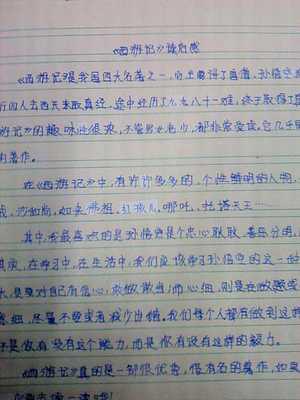 《西游记》读后感
《西游记》是我国四大名著之一,向主要写了唐道,孙悟空
行四人去西天求取真经,途中经历了九九八十一难,终于取得了
游记》的趣味性很浓,不管男女老少,都非常爱读,它几乎
的著作。
在《西游记》中,有许许多多的,个性鲜明的人物,
戒,沙和尚,如来佛祖,红孩儿,哪吒,托塔天王……
其中,我最喜欢的是孙悟空是个忠心耿耿、善恶分明,
其实,在学习中,在生活中,我们应该学习孙悟空的这一
是要对自己有信心,敢做敢当;而心细,则是在做题
细,尽量不要或者减少出错。我们每个人都有做到这样
不是你有没有这个能力,而是你有没有这样的毅力。
《西游记》真的是一部很优秀,很有名的著作,如
读一读哦!